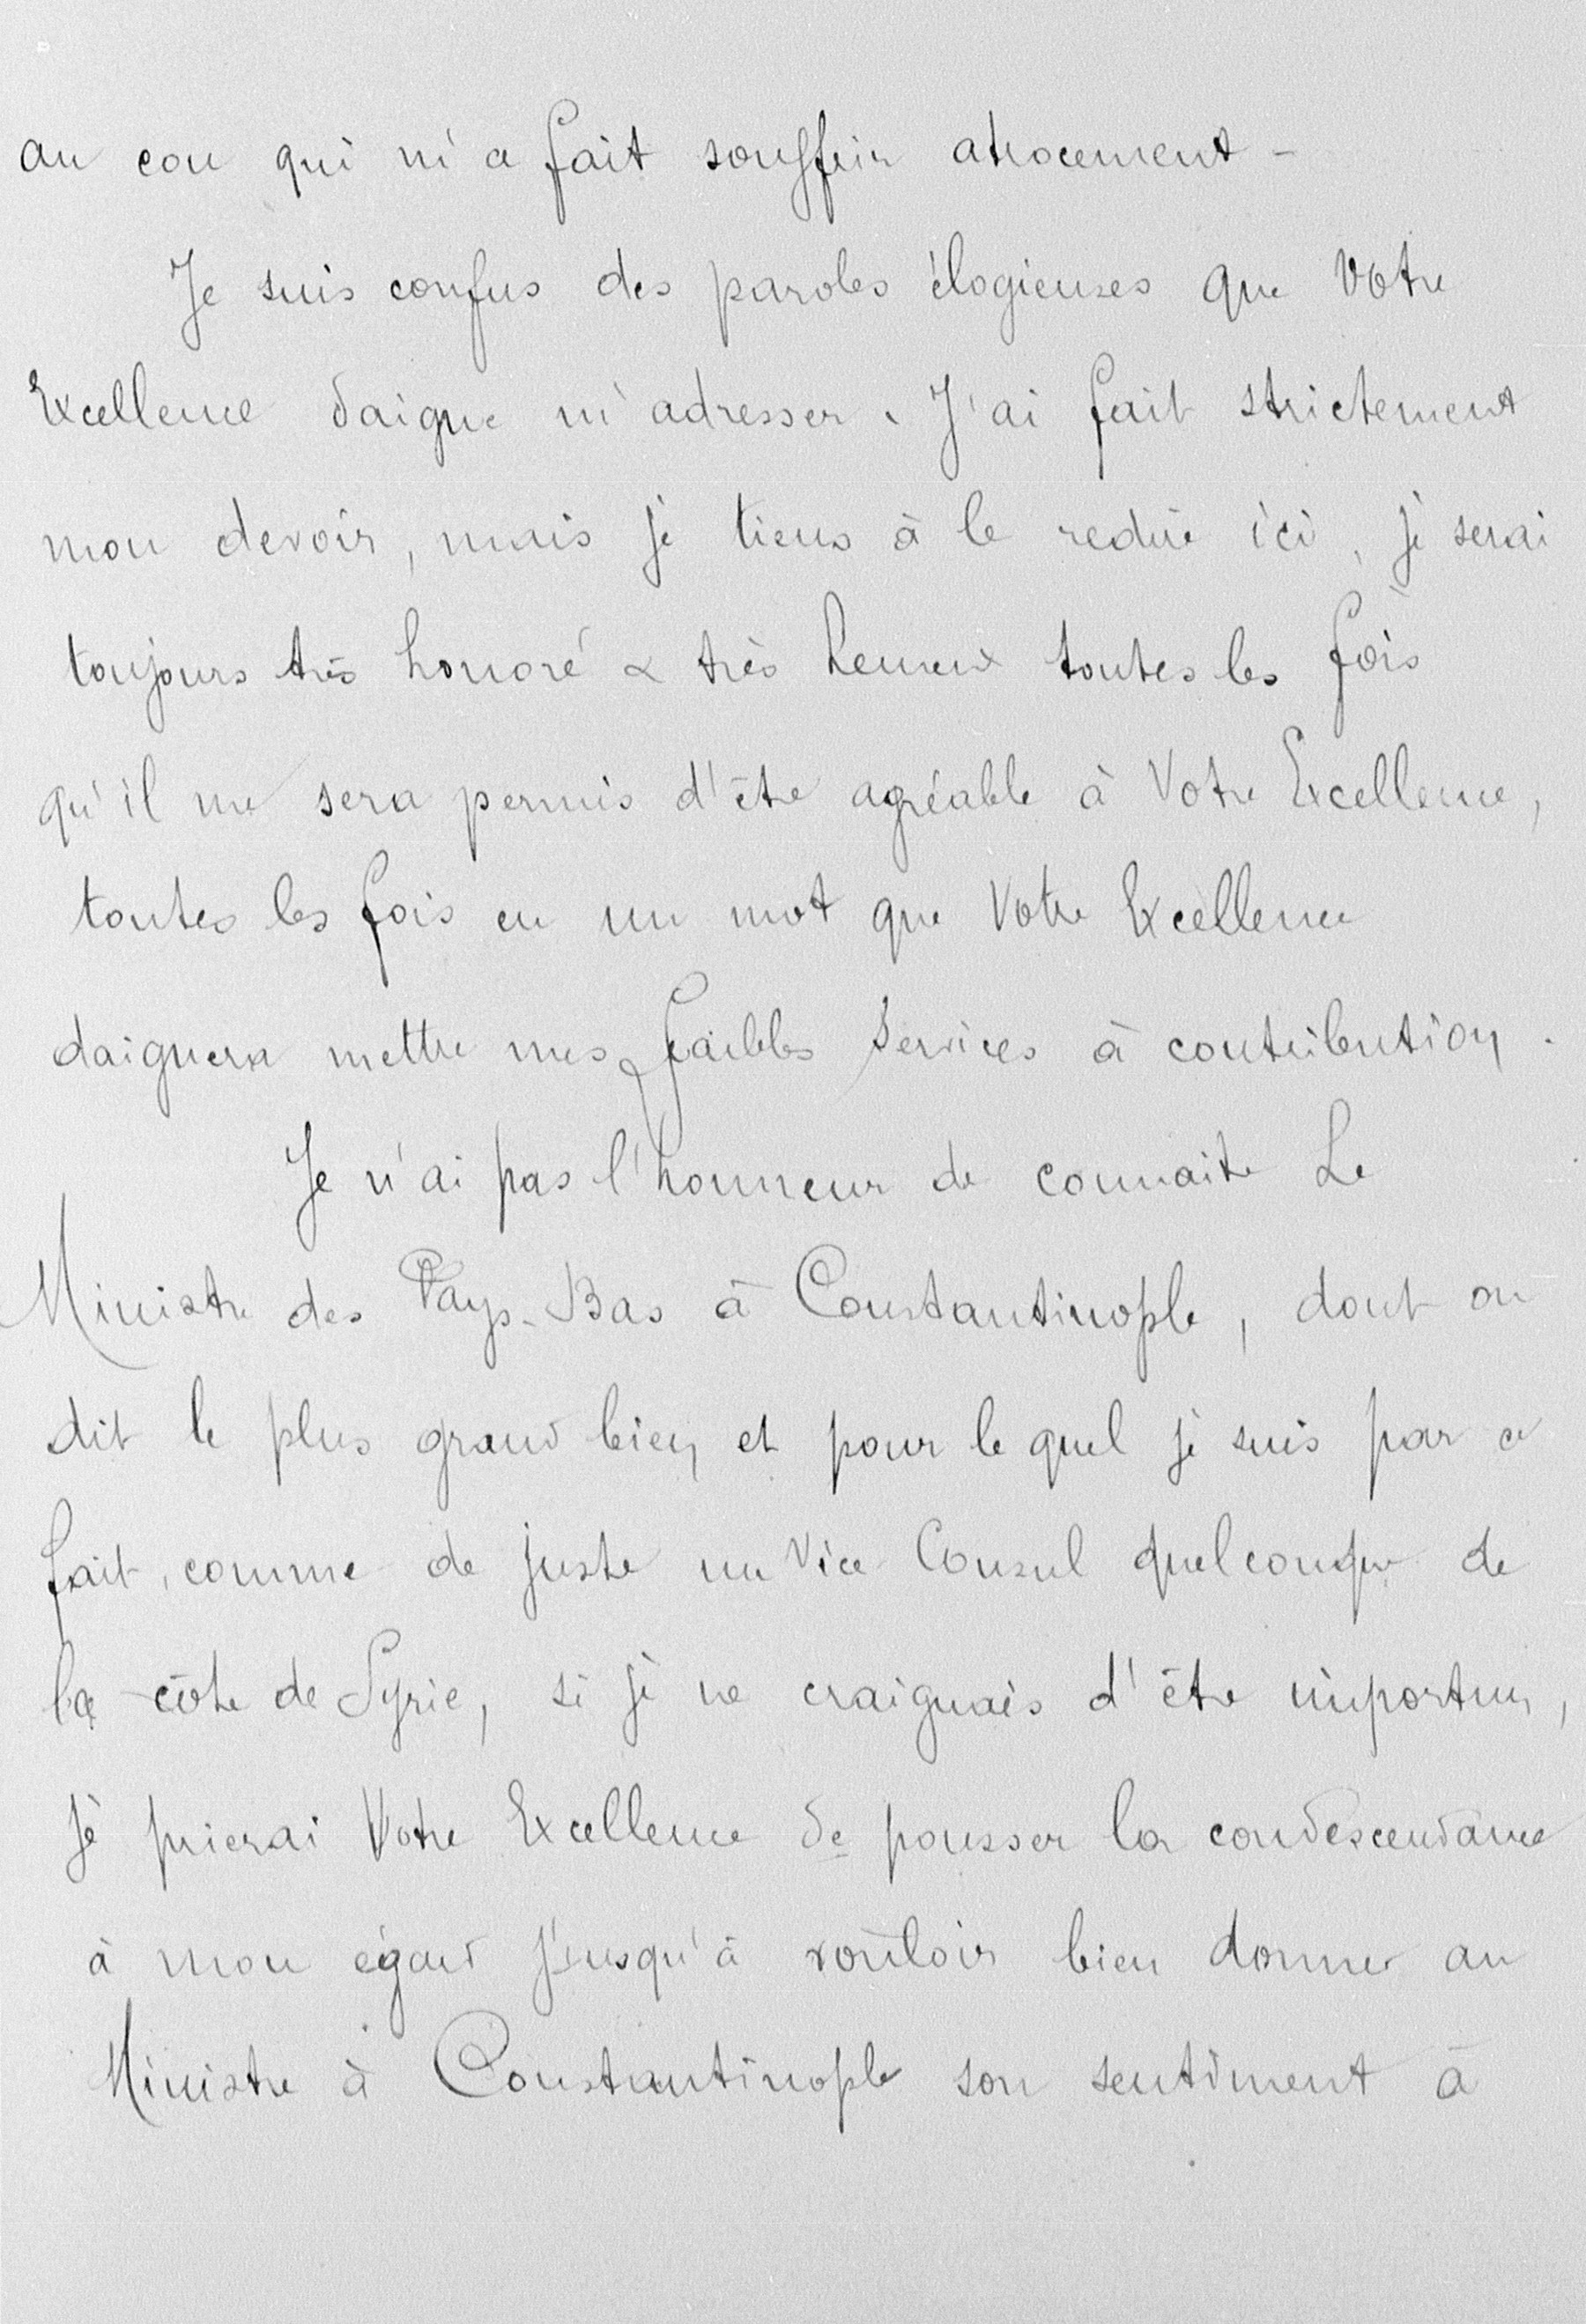 au cou qui m'a fait souffrir atrocement -
Je suis confus des paroles élogieuses que Votre
Excellence daigne m'adresser. J'ai fait strictement
mon devoir, mais je tiens à le redire ici, je serai
toujours très honoré & très heureux toutes les fois
qu'il me sera permis d'être agréable à Votre Excellence,
toutes les fois en un mot que Votre Excellence
daignera mettre mes faibles services à contribution.
Je n'ai pas l'honneur de connaitre Le
Ministre des Pays-Bas à Constantinople, dont on
dit le plus grand bien et pour le quel je suis par ce
fait, comme de juste un Vice Consul quelconque de
la côte de Syrie, si je ne craignais d'être importun,
je prierai Votre Excellence de pousser la condescendance
à mon égard jusqu'à vouloir bien donner au
Ministre à Constantinople son sentiment à